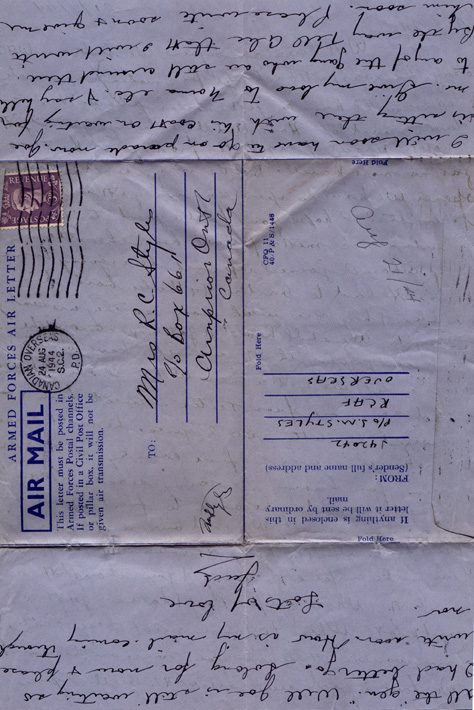 I will soon have to go on parade now. Joe
is sitting there with his coat on waiting for
me. Give my love to Nana etc. & say hello
to any of the gang who are still around there.
By the way Tell Alec that I will write
him soon. Please write soon & give me
all the "gen". Well Joe is still waiting so
I had better go. So long for now & please
write soon. How is my mail coming through
now.
Lots of love
Jack
ARMED FORCES AIR LETTER
POSTAGE REVENUE
CANADIAN OVERSEAS P.D.
24 AUG
1944
S.C.2.
AIR MAIL
This letter must be posted in
Armed Forces Postal channels.
If posted in a Civil Post Office
or pillar box, it will not be
given air transmission.
TO:
Mrs R.C. Styles
℅ Box 661
Arnprior Ont
Canada
Fold Here
If anything is enclosed in this
letter it will be sent by ordinary
mail.
FROM:
(Sender's full name and address)
J42042
P/O STYLES
RCAF
OVERSEAS
Fold Here
Fold Here
Aug 24/44